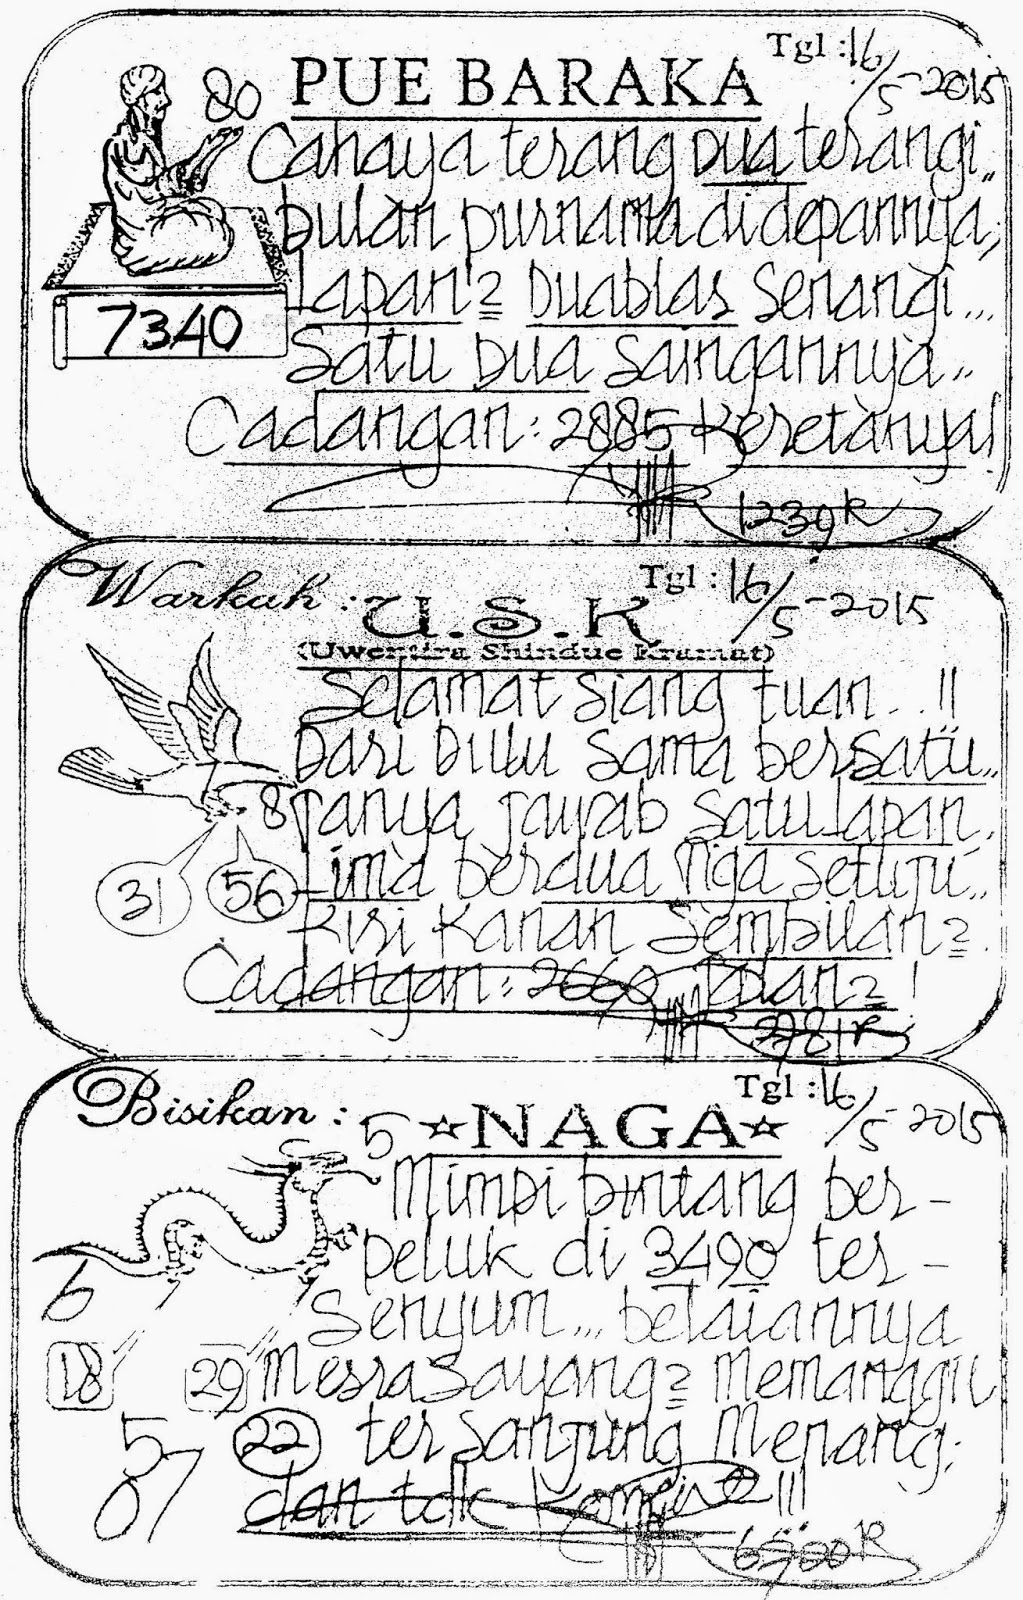 Tgl : 16/5-2015
PUE BARAKA
80
Cahaya terang Dua terangi..
bulan purnama didepannya,
7340
Lapan2 Duablas Senangi...
Satu Dua Saingannya..
Cadangan : 2885 Keretanya!
1239R
Warkah : U.S.K
Tgl : 16/5-2015
(Uwentira Shindue Kramat)
Selamat Siang tuan...!!
Dari Dulu Sama berSatu..
8
Tanya Jawab Satu Lapan.
31 56
Lima berdua Tiga Setuju..
Kiri Kanan Sembilan2.
Cadangan : 2660 Jalan2 !
2781R
Bisikan : NAGA
Tgl : 16/5-2015
5
Mimpi bintang ber-
peluk di 3490 ter-
6
Senyum... belaiannya
18 29
Mesra Sayang2 Memanggil
5
22
terSanjung Menang,
07
dan tdk !!!
R